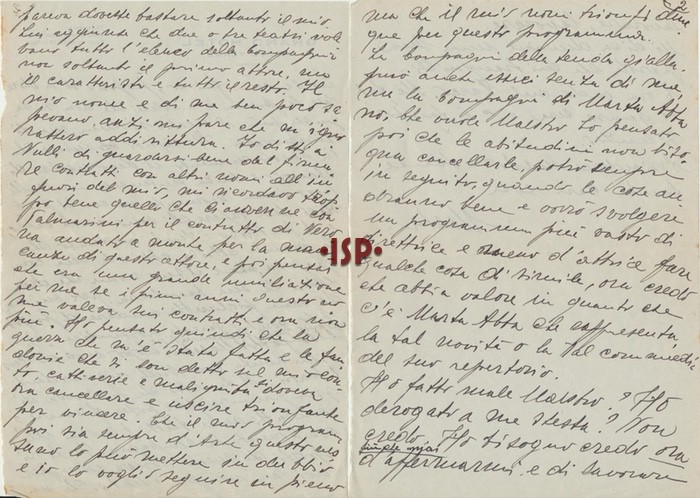 pareva dovette bastare soltanto il mio.
Lui aggiunse che due o tre teatri vole
vano tutto l'elenco della compagnia
non soltanto il primo attore, ma
il caratterista e tutto il resto. Il
mio nome e di me ben poco sa
pevano, anzi mi pare che m'igno
rattero addirittura. Io dissi a
Nulli di guardarsi bene dal firma
re contratti con altri nomi all'in
fuori del mio, mi ricordavo trop
po bene quello che ci avvenne con
Palmarini per il contratto di Vero
na andato a monte per la man
canza di questo attore, e poi pensai
che era una grande umiliazione
per me se i primi anni questo no
me valeva sui contratti e ora non
più. Ho pensato quindi che la
guerra che m'è stata fatta e le
che si son dette sul mio con
to, cattiverie e malignità dovevo
ora cancellare e uscire trionfante
per vincere. Che il mio program
poi sia sempre d'Arte questo nes
suno lo può mettere in dubbio
e io lo voglio seguire in pieno
2
ma che il mio nome trionfi dun
que per questo programma.
La Compagnia della tenda gialla
può anche esserci senza di me,
ma la compagnia di Marta Abba
no, che vuole Maestro ho pensato
poi che le abitudini non biso,
gna cancellarle, potrò sempre
in seguito, quando le cose an
dranno bene e dovrò svolgere
un programma più vasto di
direttrice e meno d'attrice fare
qualche cosa di simile, ora credo
che abbia valore in quanto che
c'è Marta Abba che rappresenta
la tal novità o la tal commedia
del suo repertorio.
Ho fatto male Maestro? Ho
derogato a me stessa? Non
credo. Ho bisogno credo ora
d'affermarmi e di lavorare
·ISP·